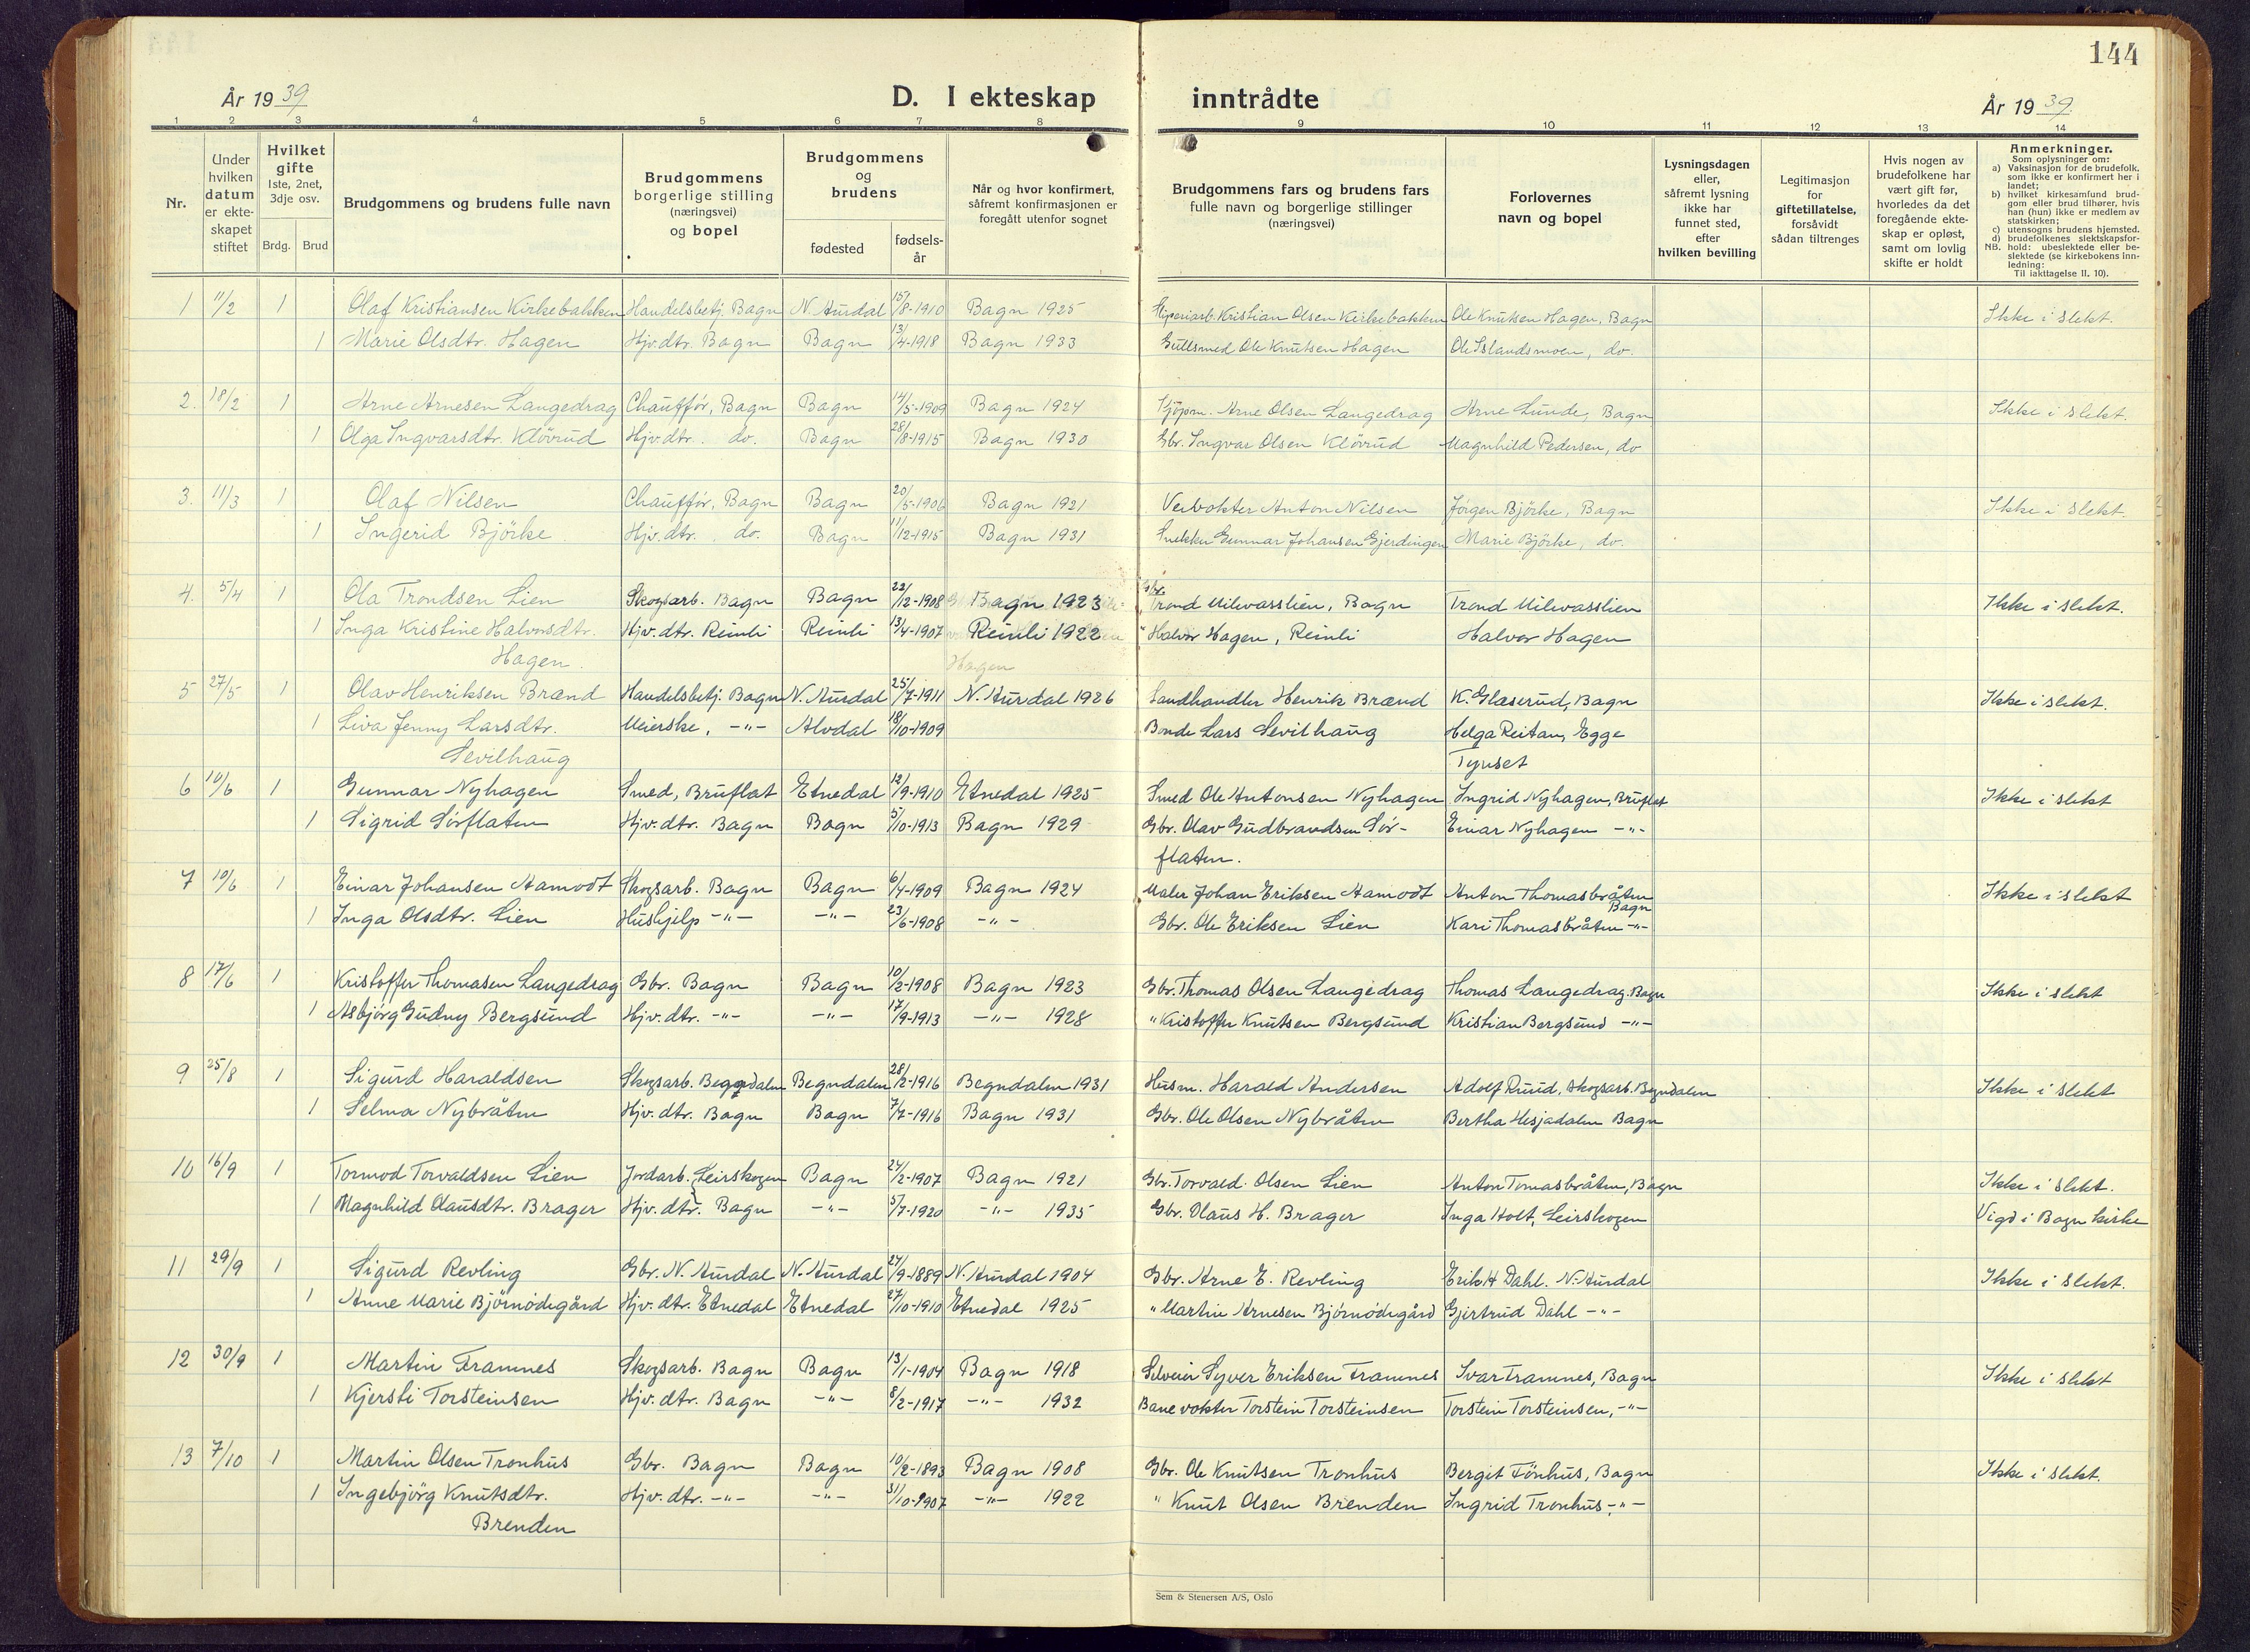 144
År 1939 D. I ekteskap inntrådte År 1939
1 2 3 4 5 6 7 8 9 10 11 12 13 14
Nr.
Under hvilken datum er ekte- skapet stiftet
Hvilket gifte 1ste, 2net, 3dje osv.
Brdg. Brud
Brudgommens og brudens fulle navn
Brudgommens borgerlige stilling (næringsvei) og bopel
Brudgommens og brudens
fødested fødsels- år
Når og hvor konfirmert, såfremt konfirmasjonen er foregått utenfor sognet
Brudgommens fars og brudens fars fulle navn og borgerlige stillinger (næringsvei)
Forlovernes navn og bopel
Lysningsdagen eller, såfremt lysning ikke har funnet sted, efter hvilken bevilling
Legitimasjon for giftetillatelse, forsåvidt sådan tiltrenges
Hvis nogen av brudefolkene har vært gift før, hvorledes da det foregående ekte- skap er opløst, samt om lovlig skifte er holdt
Anmerkninger.
Som oplysninger om:
a) Vaksinasjon for de brudefolk. som ikke er konfirmert her i landet;
b) hvilket kirkesamfund brud- gom eller brud tilhører, hvis han (hun) ikke er medlem av statskirken;
c) utensogns brudens hjemsted.
d) brudefolkenes slektskapsfor-
NB. hold: ubeslektede eller be- slektede (se kirkebokens inn- ledning:
Til iakttagelse II, 10).
1 11/2 1 Olaf Kristiansen Kirkebakken Handelsbetj. Bagn N. Aurdal 15/8-1910 Bagn 1925 Kristian Olsen Kirkebakken Ole Knutsen Hagen, Bagn Ikke i slekt.
1 Marie Olsdtr. Hagen Hjv.dtr. Bagn Bagn 13/4-1918 Bagn 1933 Gullsmed Ole Knutsen Hagen Ole Islandsmoen, do.
2. 18/2 1 Arne Arnesen Langedrag Chauffør, Bagn Bagn 14/5-1909 Bagn 1924 Kjøpm. Arne Olsen Langedrag Arne Lunde, Bagn Ikke i slekt.
1 Olga Ingvarsdtr. Kløvrud Hjv.dtr. do. Bagn 28/8-1915 Bagn 1930 Gbr. Ingvar Olsen Kløvrud Magnhild Pedersen, do
3. 11/3 1 Olaf Nilsen Chauffør, Bagn Bagn 20/5-1906 Bagn 1921 Veivokter Anton Nilsen Jørgen Bjørke, Bagn Ikke i slekt.
1 Ingerid Bjørke Hjv.dtr. do. Bagn 11/12-1915 Bagn 1931 Snekker Gunnar Johansen Gjerdingen Marie Bjørke, do.
4. 5/4 1 Ola Trondsen Lien Skogsarb. Bagn Bagn 22/12-1908 Bagn 1923 Gbr. Trond Milevasslien, Bagn Trond Milevasslien Ikke i slekt.
1 Inga Kristine Halvorsdtr. Hjv.dtr. Reinli Reinli 13/4-1907 Reinli 1922 " Halvor Hagen, Reinli Halvor Hagen
Hagen. Hagen
5 27/5 1 Olav Henriksen Brænd Handelsbetj. Bagn N. Aurdal 25/7-1911 N. Aurdal 1926 Landhandler Henrik Brænd K. Glaserud, Bagn Ikke i slekt.
1 Liva Jenny Larsdtr. Meierske, -"- Alvdal 18/10-1909 Bonde Lars Sevilhaug Helga Reitan, Egge
Sevilhaug Tynset
6 10/6 1 Gunnar Nyhagen Smed, Bruflat Etnedal 12/9-1910 Etnedal 1925 Smed Ole Antonsen Nyhagen Ingrid Nyhagen, Bruflat Ikke i slekt
1 Sigrid Sørflaten Hjv.dtr. Bagn Bagn 5/10-1913 Bagn 1929 Gbr. Olav Gudbrandsen Sør- Einar Nyhagen -"-
flaten.
7 10/6 1 Einar Johansen Aamodt Skogsarb. Bagn Bagn 6/4-1909 Bagn 1924 Maler Johan Eriksen Aamodt Anton Thomasbråten Bagn Ikke i slekt
1 Inga Olsdtr. Lien Hushjelp -"- -"- 23/6-1908 -"- Gbr. Ole Eriksen Lien Kari Thomasbråten -"-
8 17/6 1 Kristoffer Thomasen Langedrag Gbr. Bagn Bagn 10/2-1908 Bagn 1923 Gbr. Thomas Olsen Langedrag Thomas Langedrag. Bagn Ikke i slekt
1 Asbjørg Gudny Bergsund Hjv.dtr. -"- -"- 17/9-1913 -"- 1928 " Kristoffer Knutsen Bergsund Kristian Bergsund -"-
9 25/8 1 Sigurd Haraldsen Skogsarb. Begndalen Begndalen 28/2-1916 Begndalen 1931 Husm. Harald Andersen Adolf Ruud, skogsarb. Begndalen Ikke i slekt
1 Selma Nybråten Hjv.dtr. Bagn Bagn 7/7-1916 Bagn 1931 Gbr. Ole Olsen Nybråten Bertha Hesjadalen Bagn
10 16/9 1 Tormod Torvaldsen Lien Jordarb. Leirskogen Bagn 24/2-1907 Bagn 1921 Gbr. Torvald Olsen Lien Anton Tomasbråten, Bagn Ikke i slekt.
1 Magnhild Olausdtr. Brager Hjv.dtr. Bagn -"- 5/7-1920 -"- 1935 Gbr. Olaus H. Brager Inga Holt, Leirskogen Vigd i Bagn kirke
11 29/9 1 Sigurd Revling Gbr. N. Aurdal N. Aurdal 24/9-1889 N. Aurdal 1904 Gbr. Arne E. Revling Erik H Dahl. N. Aurdal Ikke i slekt.
1 Anne Marie Bjørnødegård Hjv.dtr. Etnedal Etnedal 27/10-1910 Etnedal 1925 " Martin Arnesen Bjørnødegård Gjertrud Dahl -"-
12 30/9 1 Martin Framnes Skogsarb. Bagn Bagn 13/1-1904 Bagn 1918 Selveier Syver Eriksen Framnes Ivar Framnes, Bagn Ikke i slekt
1 Kjersti Torsteinsen Hjv.dtr. Bagn -"- 8/2-1917 -"- 1932 Banevokter Torstein Torsteinsen Torstein Torsteinsen, -"-
13 7/10 1 Martin Olsen Tronhus Gbr. Bagn Bagn 10/2-1893 Bagn 1908 Gbr. Ole Knutsen Tronhus Bergit Fønhus, Bagn Ikke i slekt.
1 Ingebjørg Knutsdtr. Hjv.dtr. -"- -"- 31/10-1907 -"- 1922 " Knut Olsen Brenden Ingrid Tronhus, -"-
Brenden
Sem & Stenersen A/S, Oslo